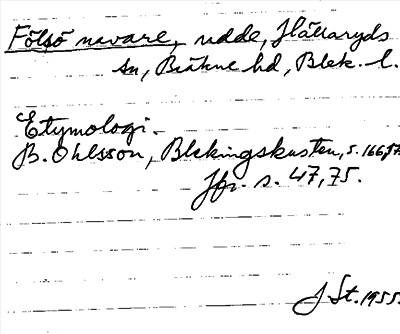 Fölsö navare, udde, Hällaryds
sn, Bräkne hd, Blek. l.
Etymologi.
B. Ohlsson, Blekingskusten, s. 166,
Jfr. s. 47, 75.
J St. 1955.